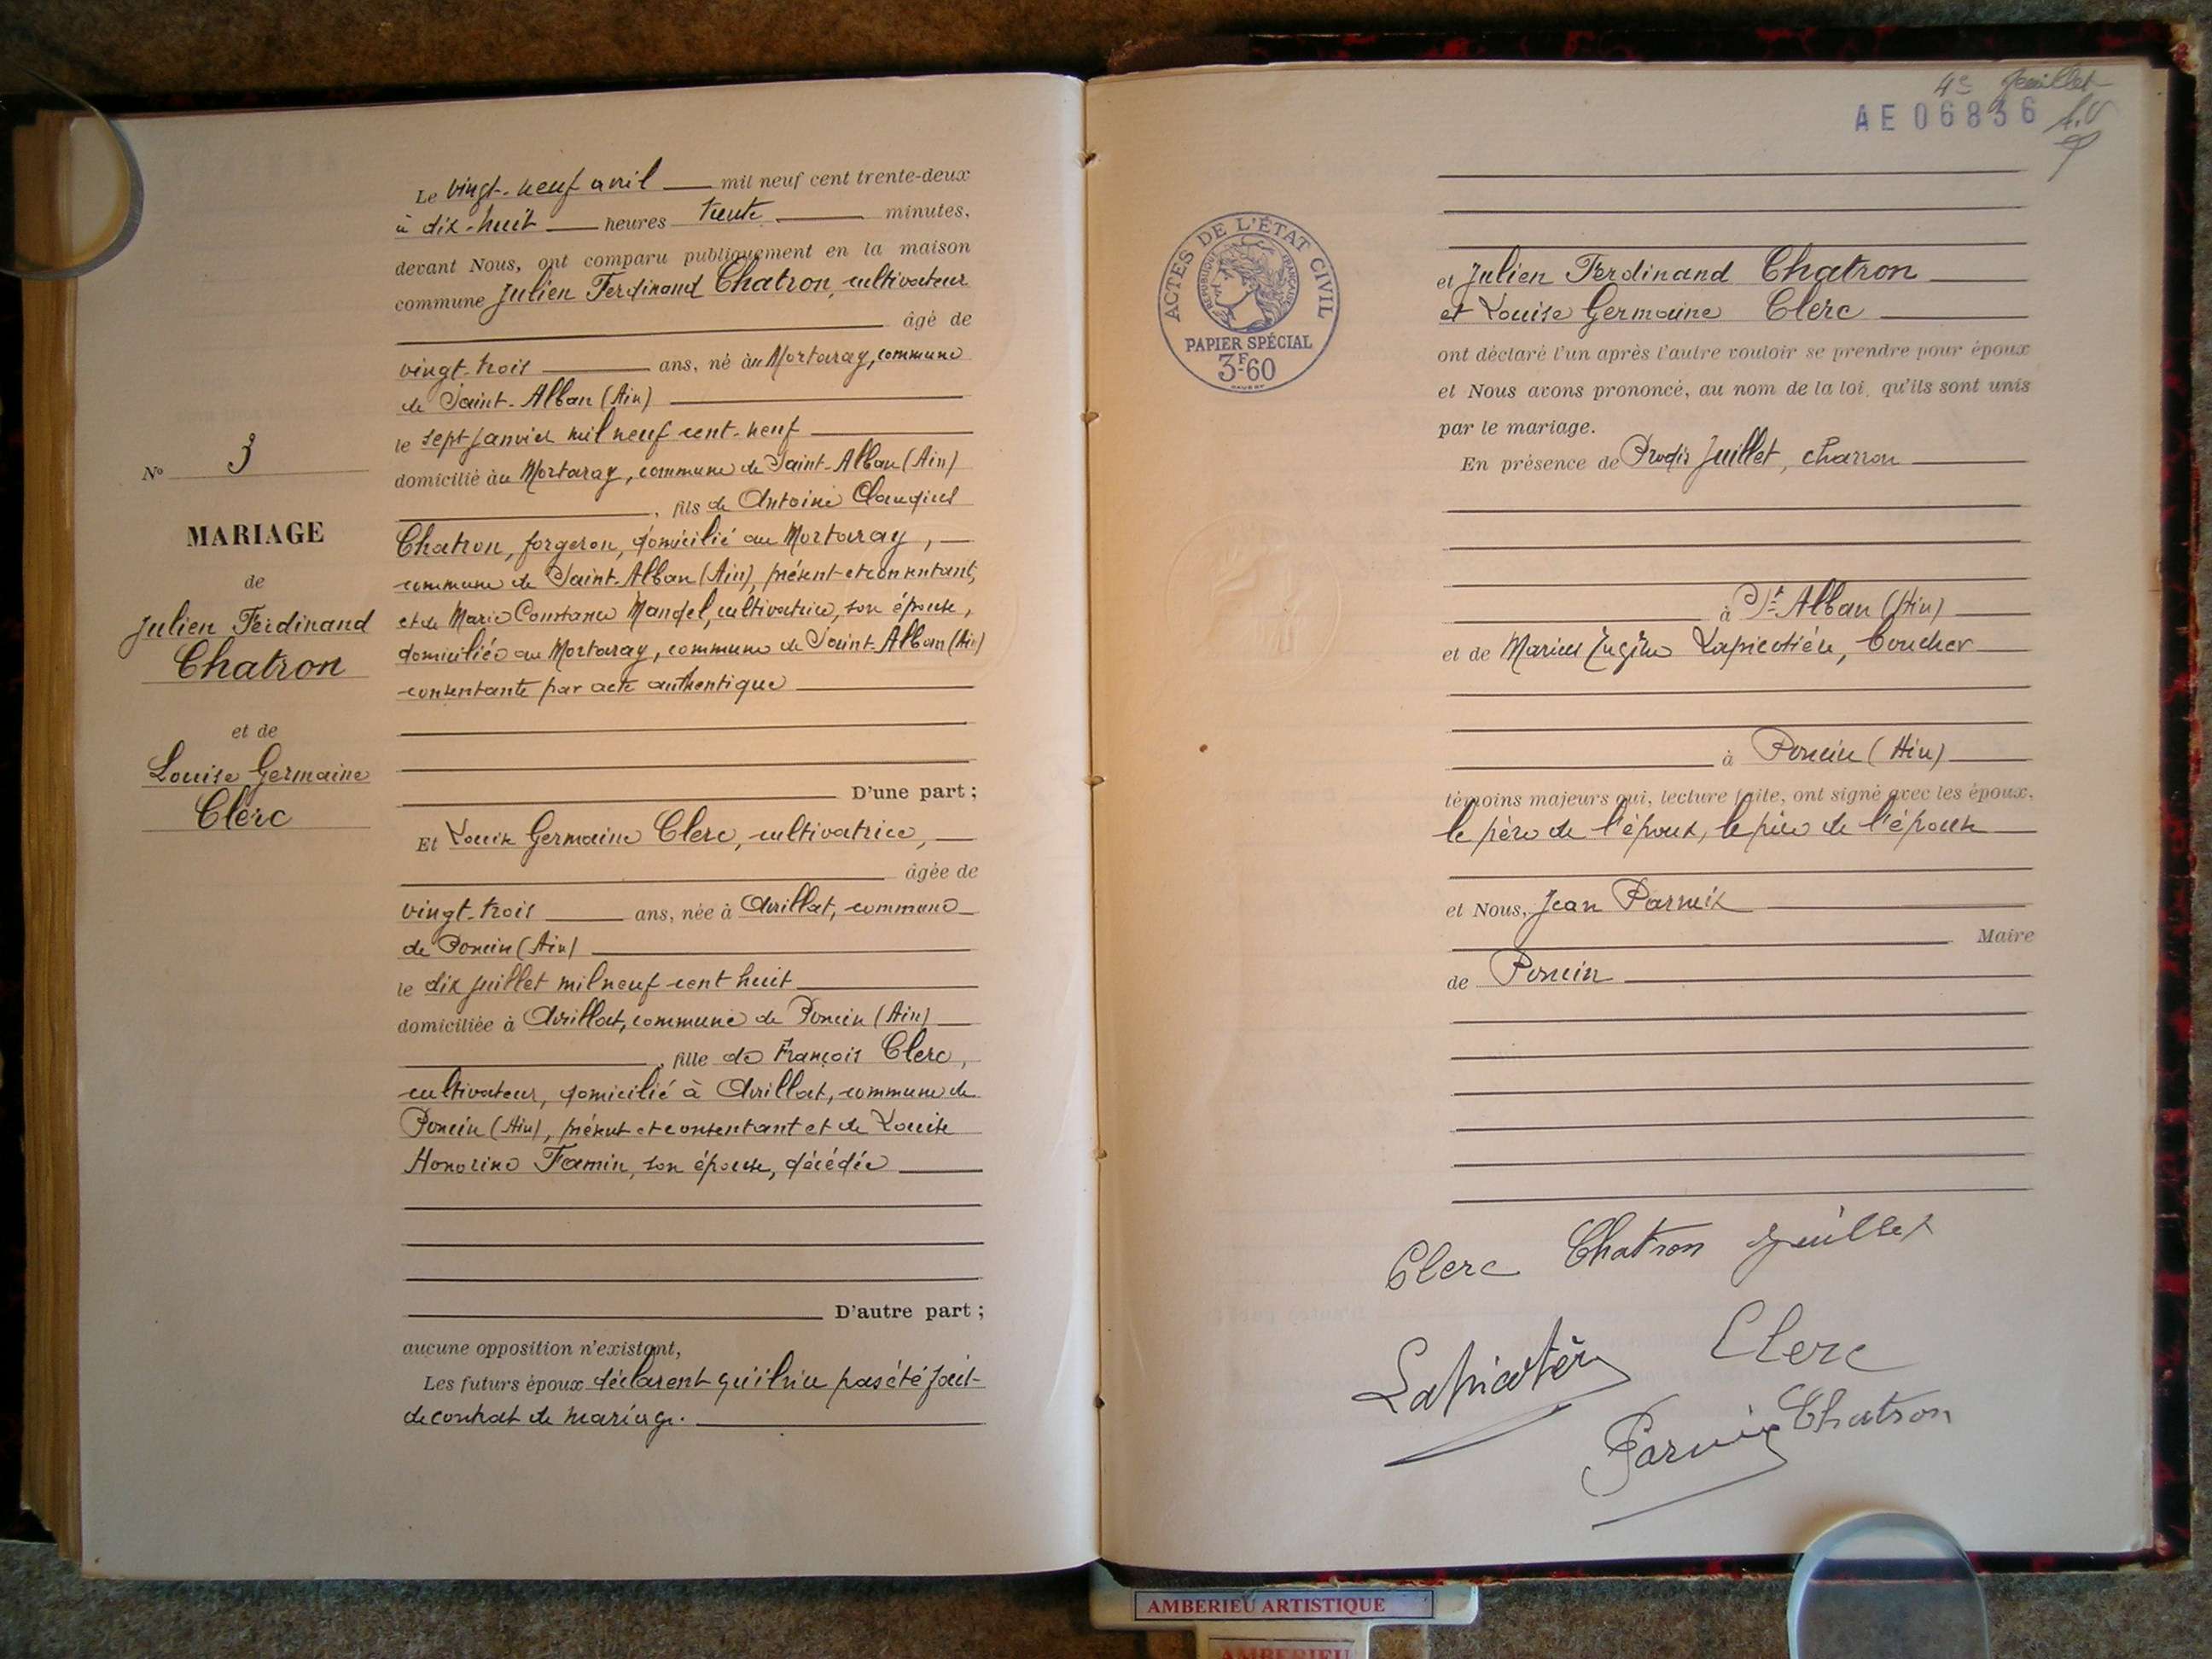 Le vingt-neuf avril mil neuf cent trente-deux
à dix-huit heures trente minutes,
devant Nous, ont comparu publiquement en la maison
commune Julien Ferdinand Chatron, cultivateur
âgé de
vingt-trois ans, né au Mortaray, commune
de Saint-Alban (Ain)
le sept janvier mil neuf cent-neuf
domicilié au Mortaray, commune de Saint-Alban (Ain)
, fils de Antoine Claudius
Chatron, forgeron, domicilié au Mortaray,
commune de Saint-Alban (Ain), présent et consentant,
et de Marie Constance Mandel, cultivatrice, son épouse,
domiciliée au Mortaray, commune de Saint-Alban (Ain)
consentante par acte authentique
D'une part ;
Et Louise Germaine Clerc, cultivatrice,
âgée de
vingt-trois ans, née à Avrillat, commune
de Poncin (Ain)
le dix juillet mil neuf cent huit
domiciliée à Avrillat, commune de Poncin (Ain)
, fille de François Clerc,
cultivateur, domicilié à Avrillat, commune de
Poncin (Ain), présent et consentant et de Louise
Honorine Famin, son épouse, décédée
D'autre part ;
aucune opposition n'existant,
Les futurs époux déclarent qu'il n'a pas été fait
de contrat de mariage.
N° 3
MARIAGE
de
Julien Ferdinand
Chatron
et de
Louise Germaine
Clerc
4e feuillet
AE 06836
ACTES DE L'ÉTAT CIVIL
RÉPUBLIQUE FRANÇAISE
PAPIER SPÉCIAL
3F60
et Julien Ferdinand Chatron
et Louise Germaine Clerc
ont déclaré l'un après l'autre vouloir se prendre pour époux
et Nous avons prononcé, au nom de la loi, qu'ils sont unis
par le mariage.
En présence de Juillet, charron
à St Alban (Ain)
et de Marius Eugène Lapicotière, boucher
à Poncin (Ain)
témoins majeurs qui, lecture faite, ont signé avec les époux,
le père de l'époux, le père de l'épouse
et Nous, Jean Parnix
Maire
de Poncin
Clerc Chatron Juillet
Lapicotière Clerc
Parnix Chatron
AMBERIEU ARTISTIQUE
AMBERIEU